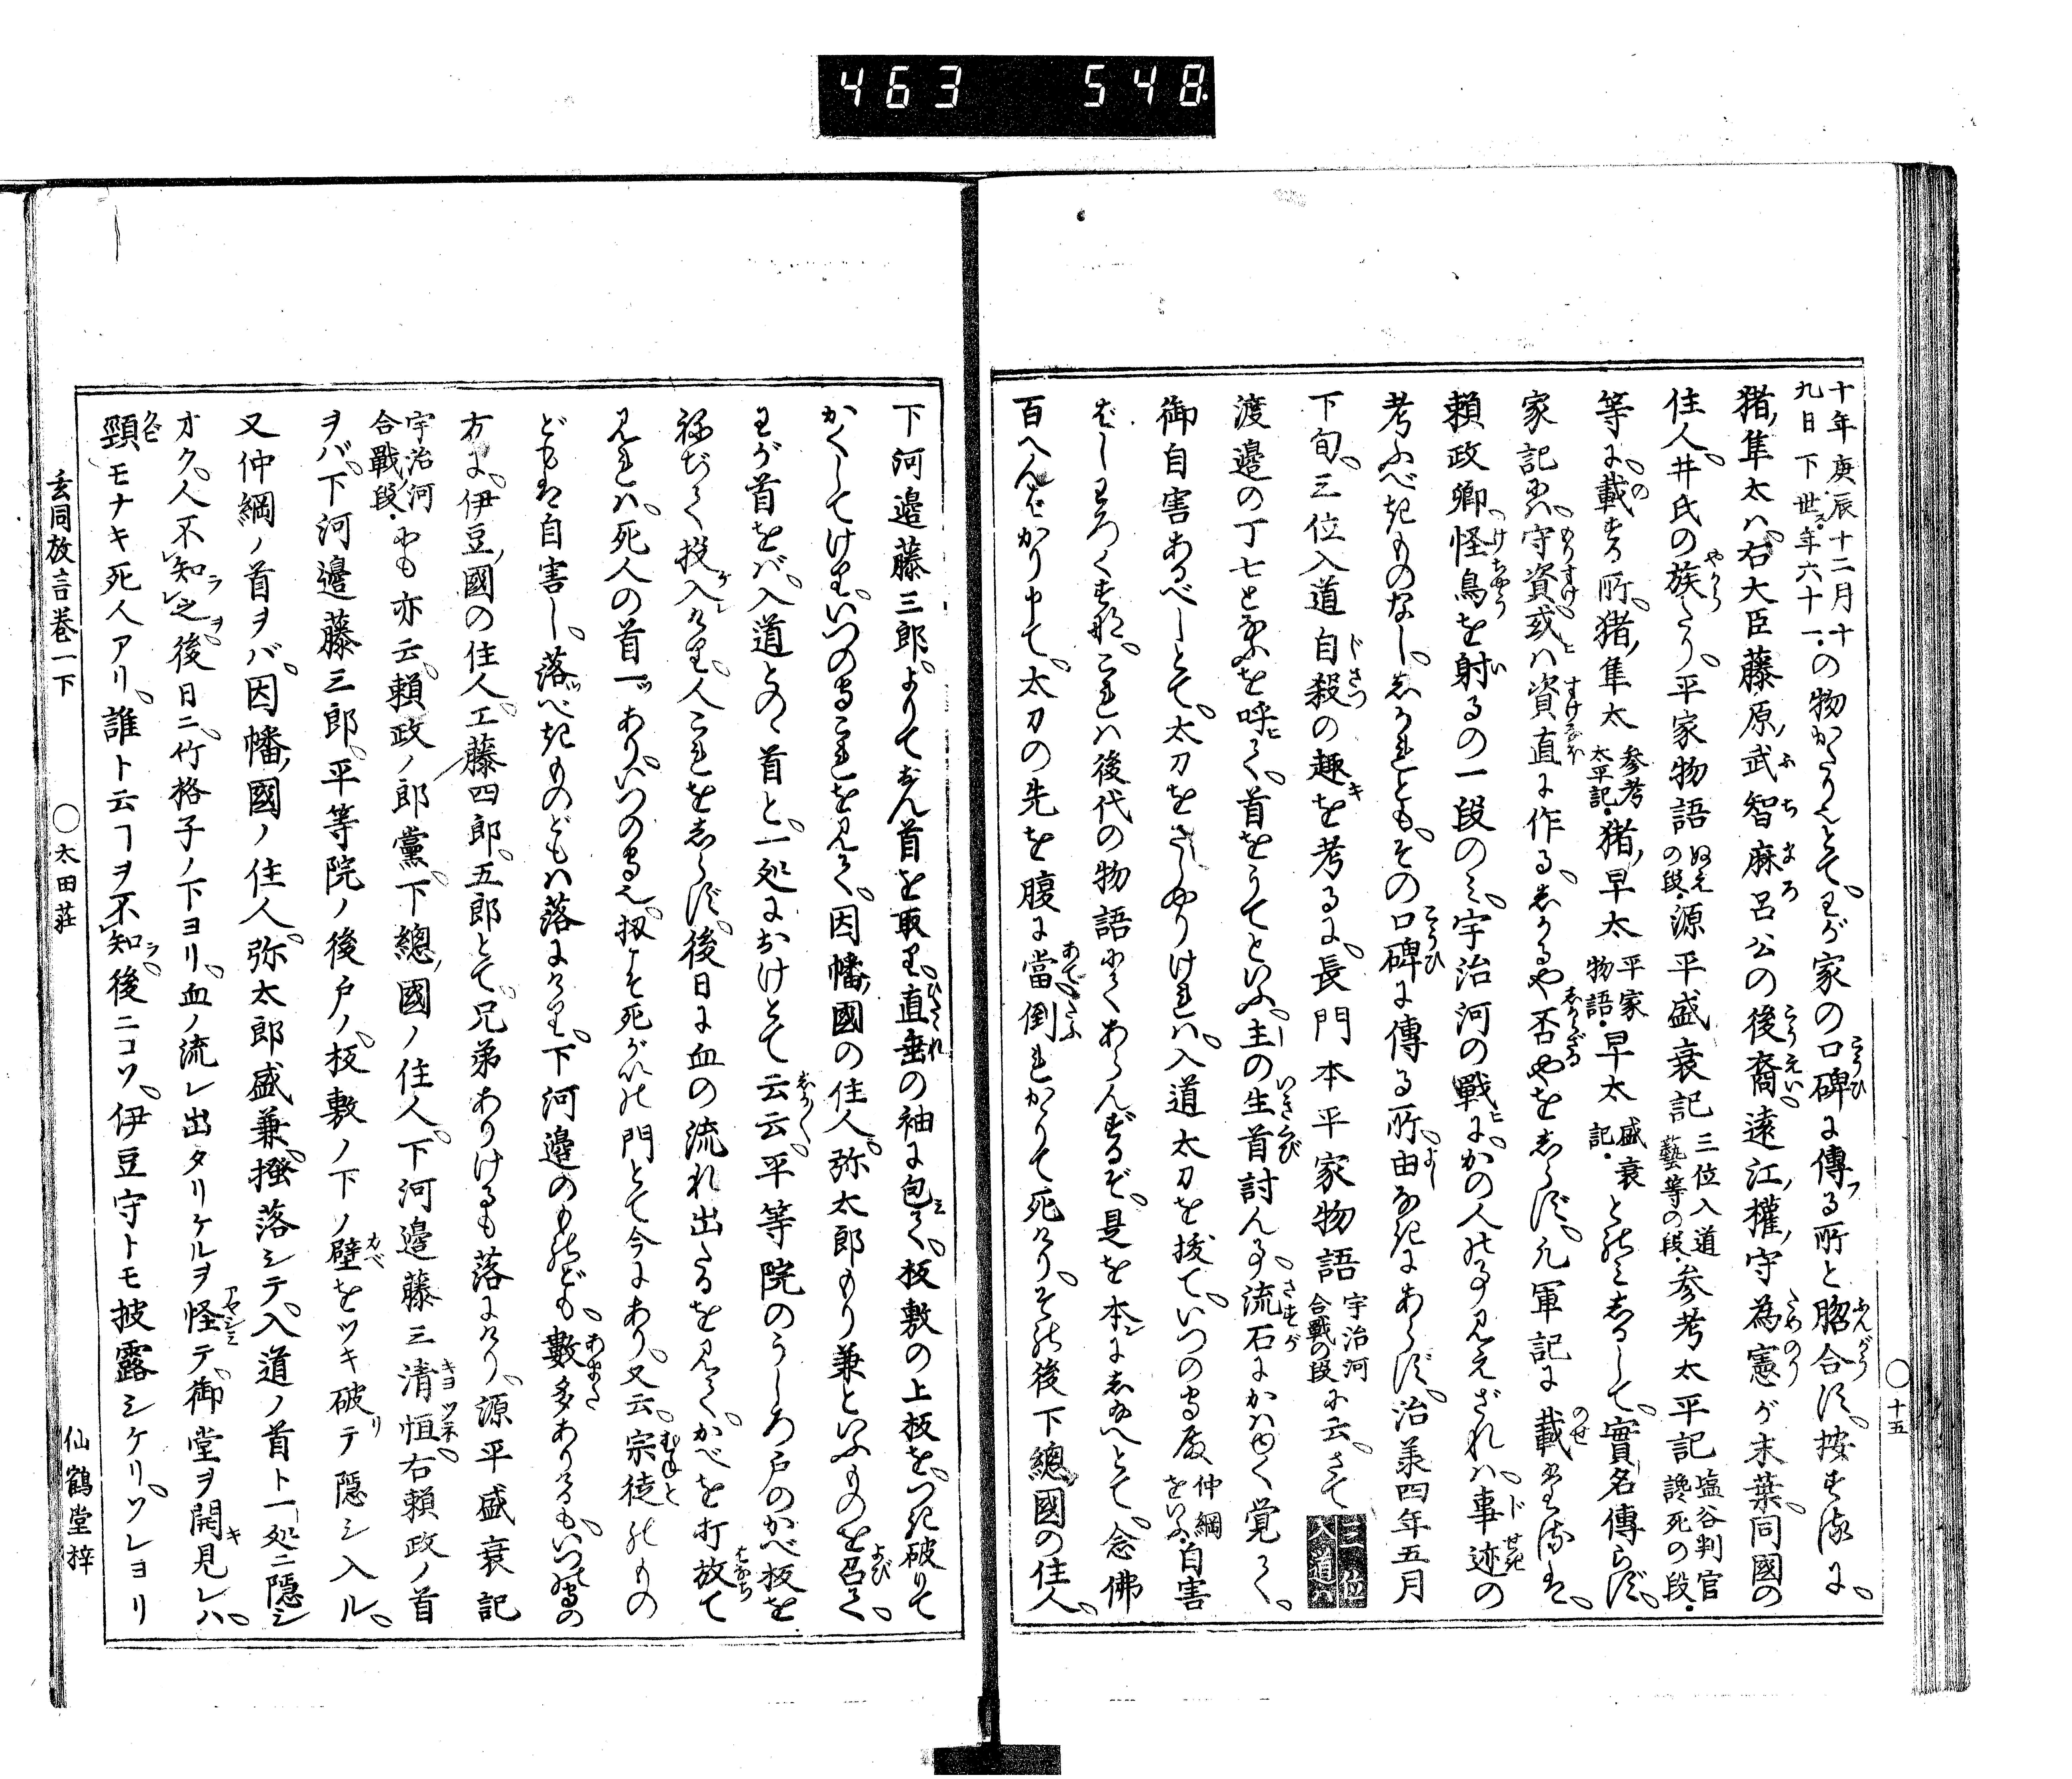 463 548
十年庚辰十二月十
九日下世ス年六十一の物がたりとてわが家の口碑に傳る所と脗合ず按ずるに
猪隼太ハ右大臣藤原武智麻呂公の後裔遠江權守為憲が末葉同國の
住人井氏の族なり平家物語ぬえの段源平盛衰記三位入道藝等の段参考太平記塩谷判官讒死の段
等に載する所猪隼太参考太平記猪早太平家物語早太盛衰記とのミしるして實名傳らず
家記にハ守資或ハ資直に作るしかるや否やをしらず元軍記に載ざれば
頼政卿怪鳥を射るの一段のミ宇治河の戰にかの人の事見えざれハ事迹の
考ふべきものなししかれどもその口碑に傳る所由なきにあらず治承四年五月
下旬三位入道自殺の趣を考るに長門本平家物語宇治河合戰の段に云さて三位入道ハ
渡邉の丁七と云を呼て首をうてといふ主の生首討ん事流石にかハゆく覚えて
御自害あるべしとて太刀をさしやりけれハ入道太刀を拔ていつの守殿仲綱をいふ自害
ばしわろくすな これハ後代の物語にてあらんずるぞ是を本にし給へとて念佛
百へんばかり申て太刀の先を腹に當倒れかゝりて死けりその後下總國の住人
〇十五
下河邉藤三郎よりておん首を取り直垂の袖に包て板敷の上板をつき破りて
かくしてけりいつの守これを見て因幡國の住人弥太郎もり兼といふものを召て
わが首をバ入道との首と一処におけとて云云平等院のうしろ戸のかべ板を
ねぢて投入けり人これをしらず後日に血の流れ出たるを見てかべを打放て
見れハ死人の首一ツありいつの守也扨こそ死がいの門とて今にあり又云宗徒のもの
どもは自害し落べきものどもハ落にけり下河邉のものども數多ありけるもいつの守の
方に伊豆國の住人工藤四郎五郎とて兄弟ありけるも落にけり源平盛衰記
宇治河合戰段にも亦云頼政ノ郎黨下總國ノ住人下河邉藤三清恒右頼政ノ首
ヲバ下河邉藤三郎平等院ノ後戸ノ板敷ノ下ノ壁をツキ破テ隠シ入ル
又仲綱ノ首ヲバ因幡國ノ住人弥太郎盛兼搔落シテ入道ノ首ト一処ニ隱シ
オク人不知之後日ニ竹格子ノ下ヨリ血ノ流レ出タリケルヲ怪テ御堂ヲ開見レハ
頸モナキ死人アリ誰ト云ヿヲ不知後ニコソ伊豆守トモ披露シケリソレヨリ
玄同放言巻一下 〇太田荘 仙鶴堂梓